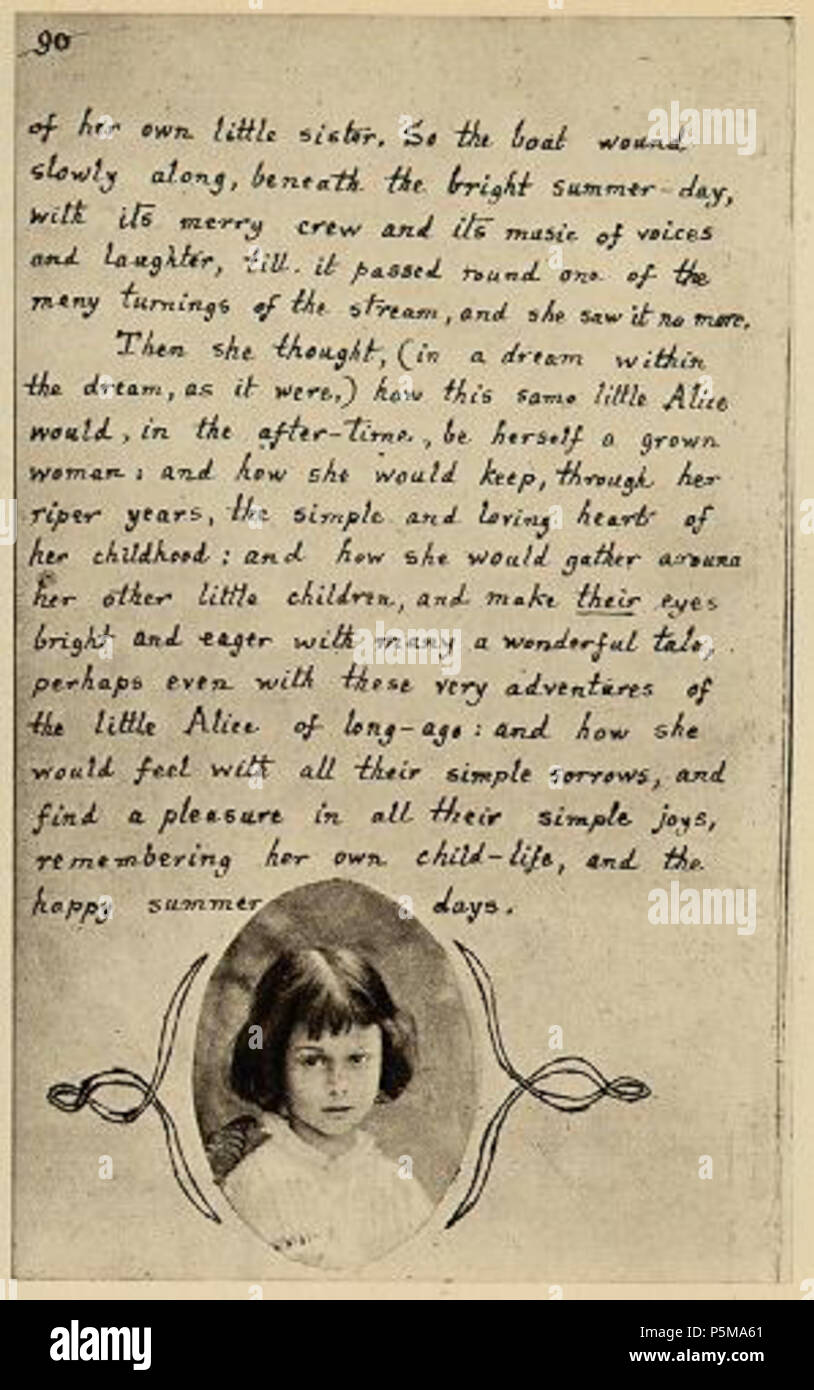 90
of her own little sister. So the boat wound
slowly along, beneath the bright summer-day,
with its merry crew and its music of voices
and laughter, till it passed round one of the
many turnings of the stream, and she saw it no more.
Then she thought, (in a dream within
the dream, as it were,) how this same little Alice
would, in the after-time, be herself a grown
woman: and how she would keep, through her
riper years, the simple and loving heart of
her childhood: and how she would gather around
her other little children, and make their eyes
bright and eager with many a wonderful tale,
perhaps even with these very adventures of
the little Alice of long-ago: and how she
would feel with all their simple sorrows, and
find a pleasure in all their simple joys,
remembering her own child-life, and the
happy summer days.
alamy
alamy
alamy
alamy
Image ID: P5MA61
www.alamy.com